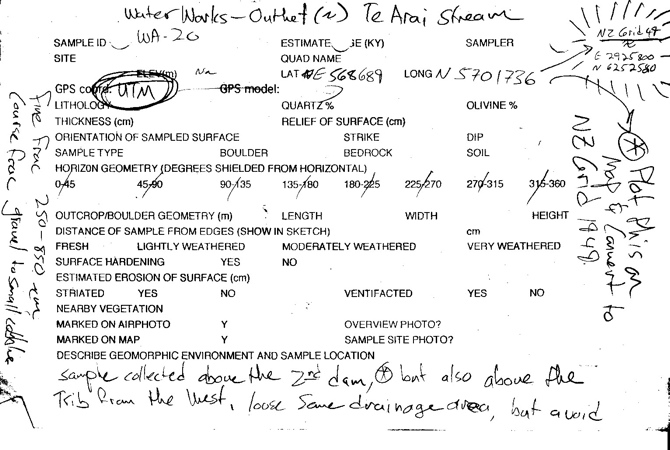 Water Works - Outlet (~) Te Arai Stream
SAMPLE ID WA-20 ESTIMATE GE (KY) SAMPLER
SITE QUAD NAME
ELEV(m) Na LAT E 568689 LONG N 5701736
GPS coord. UTM GPS model:
LITHOLOGY QUARTZ% OLIVINE %
THICKNESS (cm) RELIEF OF SURFACE (cm)
ORIENTATION OF SAMPLED SURFACE STRIKE DIP
SAMPLE TYPE BOULDER BEDROCK SOIL
HORIZON GEOMETRY (DEGREES SHIELDED FROM HORIZONTAL)
0-45 45-90 90-135 135-180 180-225 225-270 270-315 315-360
OUTCROP/BOULDER GEOMETRY (m) LENGTH WIDTH HEIGHT
DISTANCE OF SAMPLE FROM EDGES (SHOW IN SKETCH) cm
FRESH LIGHTLY WEATHERED MODERATELY WEATHERED VERY WEATHERED
SURFACE HARDENING YES NO
ESTIMATED EROSION OF SURFACE (cm)
STRIATED YES NO VENTIFACTED YES NO
NEARBY VEGETATION
MARKED ON AIRPHOTO Y OVERVIEW PHOTO?
MARKED ON MAP Y SAMPLE SITE PHOTO?
DESCRIBE GEOMORPHIC ENVIRONMENT AND SAMPLE LOCATION
sample collected above the 2nd dam, * but also above the
Trib from the West, loose some drainage area, but avoid
NZ Grid 49
E 2925800
N 6252580
* Plot this on
Map & Convert to
NZ Grid 1949.
Fine Frac 250-850 um,
Course Frac gravel to small cobble